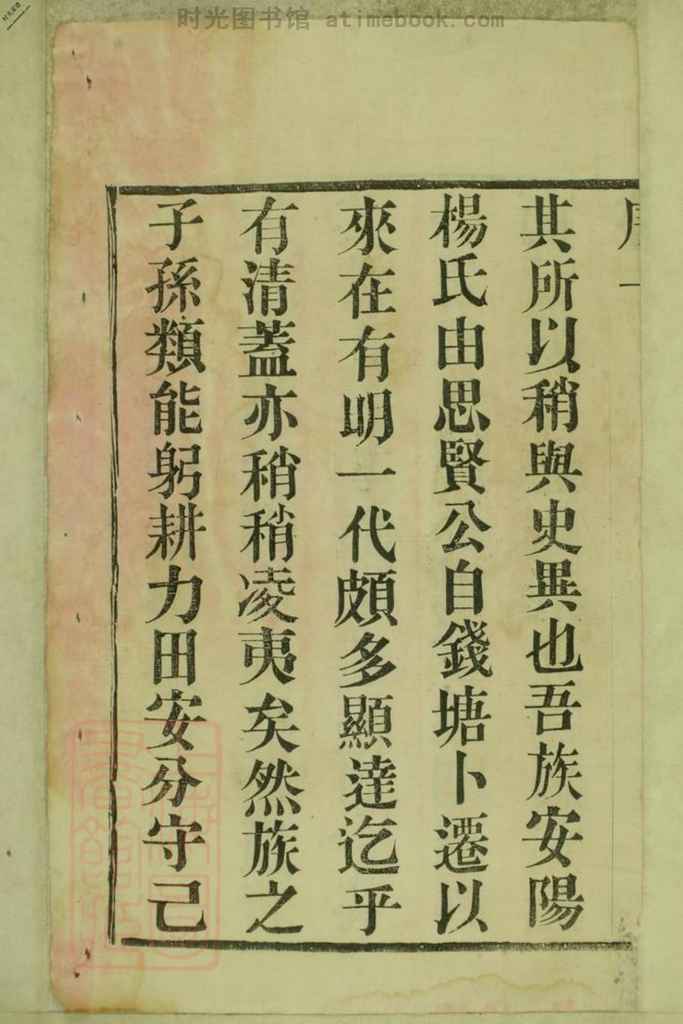 时光图书馆 atimebook.com
其所以稍與史異也吾族安陽
楊氏由思賢公自錢塘卜遷以
來在有明一代頗多顯達迄乎
有清蓋亦稍稍凌夷矣然族之
子孫類能躬耕力田安分守己